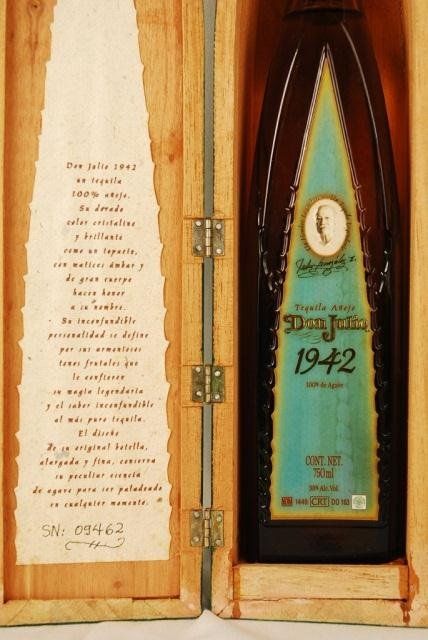 Don Julio 1942
un tequila
100% añejo.
Su dorado
color cristalino
y brillante
como un topacio,
con matices ámbar y
de gran cuerpo
hacen honor
a su nombre.
Su inconfundible
personalidad se define
por sus armoniosos
tonos frutales que
le confieren
su magia legendaria
y el sabor inconfundible
al más puro tequila.
El diseño
de su original botella,
alargada y fina, conserva
su peculiar esencia
de agave para ser paladeado
en cualquier momento.
SN: 09462
Tequila Añejo
Don Julio
1942
100% de Agave
CONT. NET.
750 ml
38% Alc. Vol.
NOM 1449 CRT DO 163